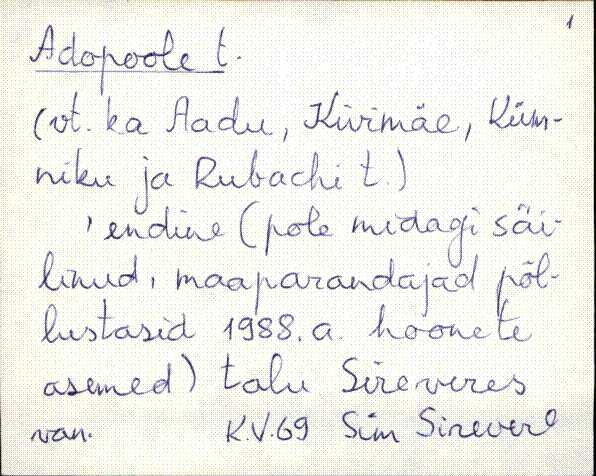 1
Adopoole t.
(vt. ka Aadu, Kivimäe, Küm-
niku ja Rubachi t.)
'endine (pole midagi säi-
linud, maaparandajad põl-
lustasid 1988. a. hoonete
asemed) talu Sireveres
van. K.V.69 Sim Sirevere